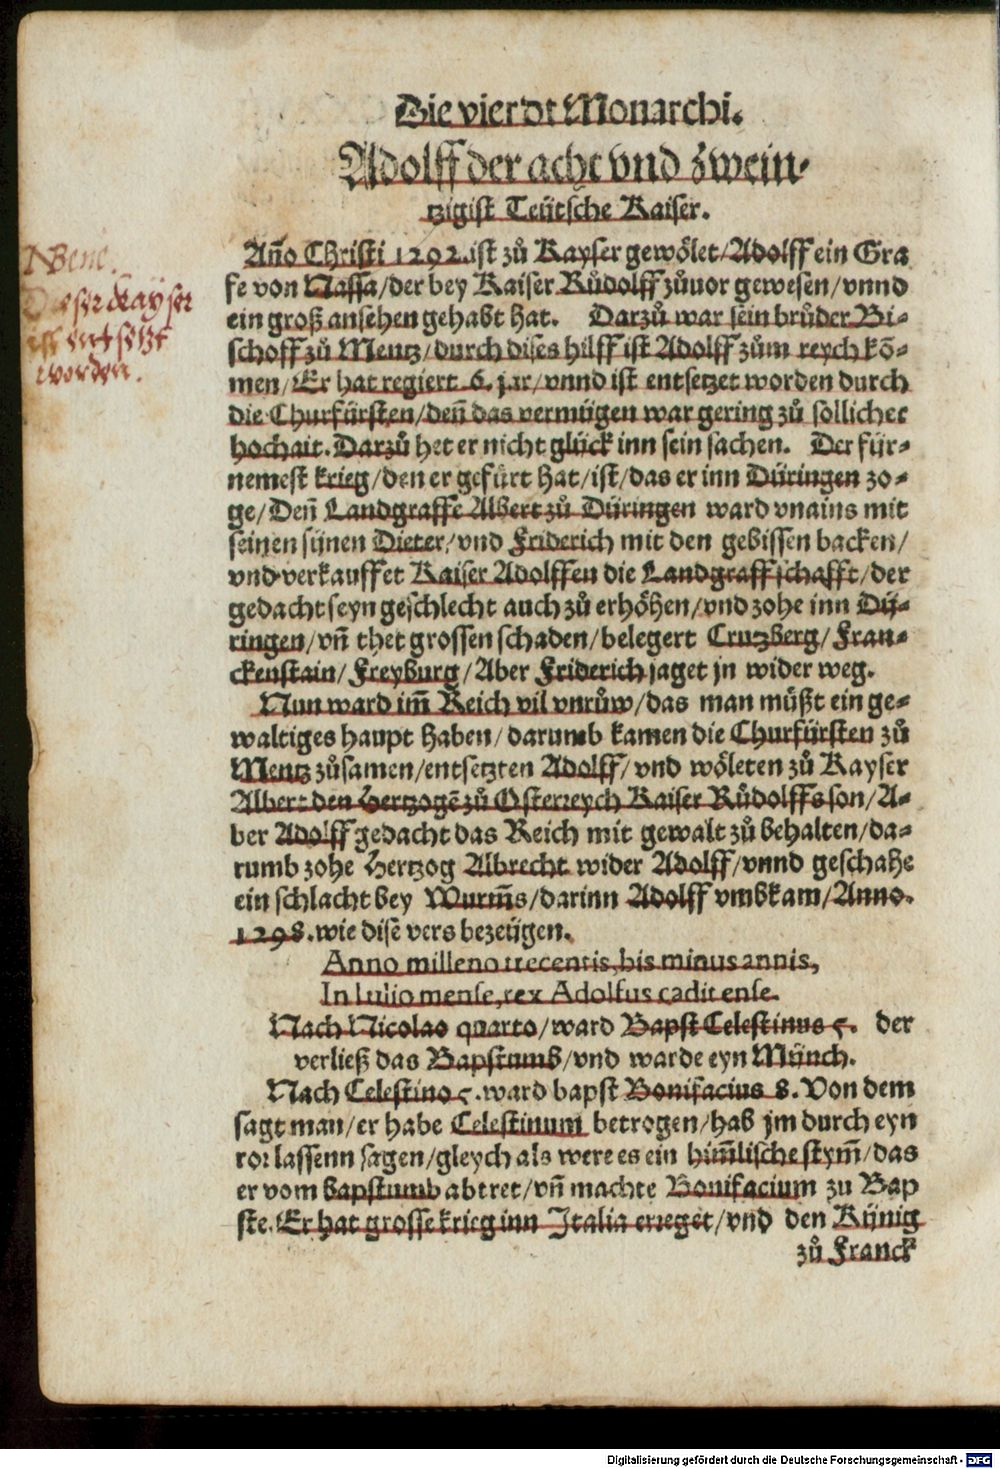 Die vierdt Monarchi.
Adolff der acht vnd zwein-
tzigist Teütsche Kaiser.
Añο Christi 1292. ist zů Kayser gewölet/Adolff ein Gra
fe von Nassa/der bey Kaiser Růdolff zůuor gewesen/vnnd
ein groß ansehen gehabt hat. Darzů war sein brůder Bi-
schoff zů Mentz/durch dises hilff ist Adolff zům reych kõ-
men/Er hat regiert 6. jar/vnnd ist entsetzet worden durch
die Churfürsten/deñ das vermügen war gering zů sollicher
hochait. Darzů het er nicht glück inn sein sachen. Der für-
nemest krieg/den er gefürt hat/ist/das er inn Düringen zo-
ge/Deñ Landgraffe Albert zů Düringen ward vnains mit
seinen sünen Dieter/vnd Friderich mit den gebissen backen/
vnd verkauffet Kaiser Adolffen die Landgraffschafft/der
gedacht seyn geschlecht auch zů erhöhen/vnd zohe inn Dü-
ringen/vñ thet grossen schaden/belegert Crutzberg/Fran-
ckenstain/Freyburg/Aber Friderich jaget jn wider weg.
Nun ward im̃ Reich vil vnrůw/das man müßt ein ge-
waltiges haupt haben/darumb kamen die Churfürsten zů
Mentz zůsamen/entsetzten Adolff/vnd wöleten zů Kayser
Albert den Hertzogẽ zů Osterreych Kaiser Růdolffs son/A-
ber Adolff gedacht das Reich mit gewalt zů behalten/da-
rumb zohe Hertzog Albrecht wider Adolff/vnnd geschahe
ein schlacht bey Wurm̃s/darinn Adolff vmbkam/Anno.
1298. wie disẽ vers bezeügen.
Anno milleno trecentis, bis minus annis,
In Iulio mense, rex Adolfus cadit ense.
Nach Nicolao quarto/ward Bapst Celestinus 5. der
verließ das Bapstumb/vnd warde eyn Münch.
Nach Celestino 5. ward bapst Bonifacius 8. Von dem
sagt man/er habe Celestinum betrogen/hab jm durch eyn
ror lassenn sagen/gleych als were es ein him̃lische stym̃/das
er vom bapstumb abtret/vñ machte Bonifacium zu Bap
ste. Er hat grosse krieg inn Italia erreget/vnd den Künig
zů Franck
NBene.
Dieser Kayser
ist entsetzt
worden.
Digitalisierung gefördert durch die Deutsche Forschungsgemeinschaft - DFG